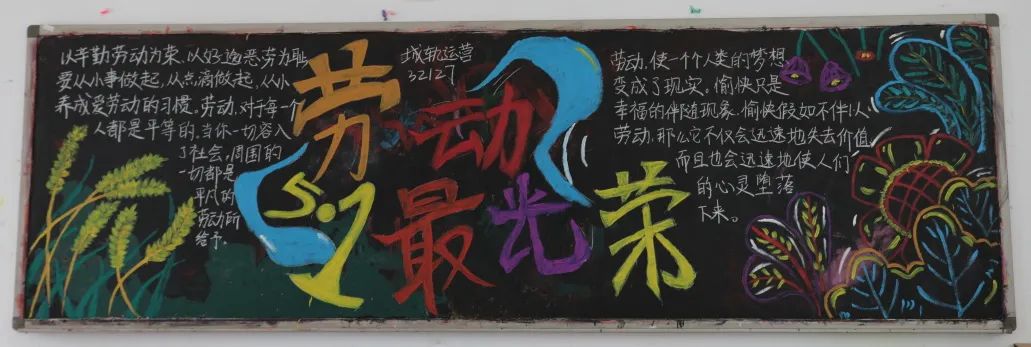 以辛勤劳动为荣,以好逸恶劳为耻
爱从小事做起,从点滴做起,从小
养成爱劳动的习惯。劳动,对于每一个
人都是平等的,当你一切容入
了社会。周围的
一切都是
平凡的
劳动所
给予。
劳动最光荣
5.1
城轨运营
32127
劳动,使一个个人类的梦想
变成了现实。愉快只是
幸福的伴随现象,愉快假如不伴以
劳动,那么它不仅会迅速地失去价值,
而且也会迅速地使人们
的心灵堕落
下来。